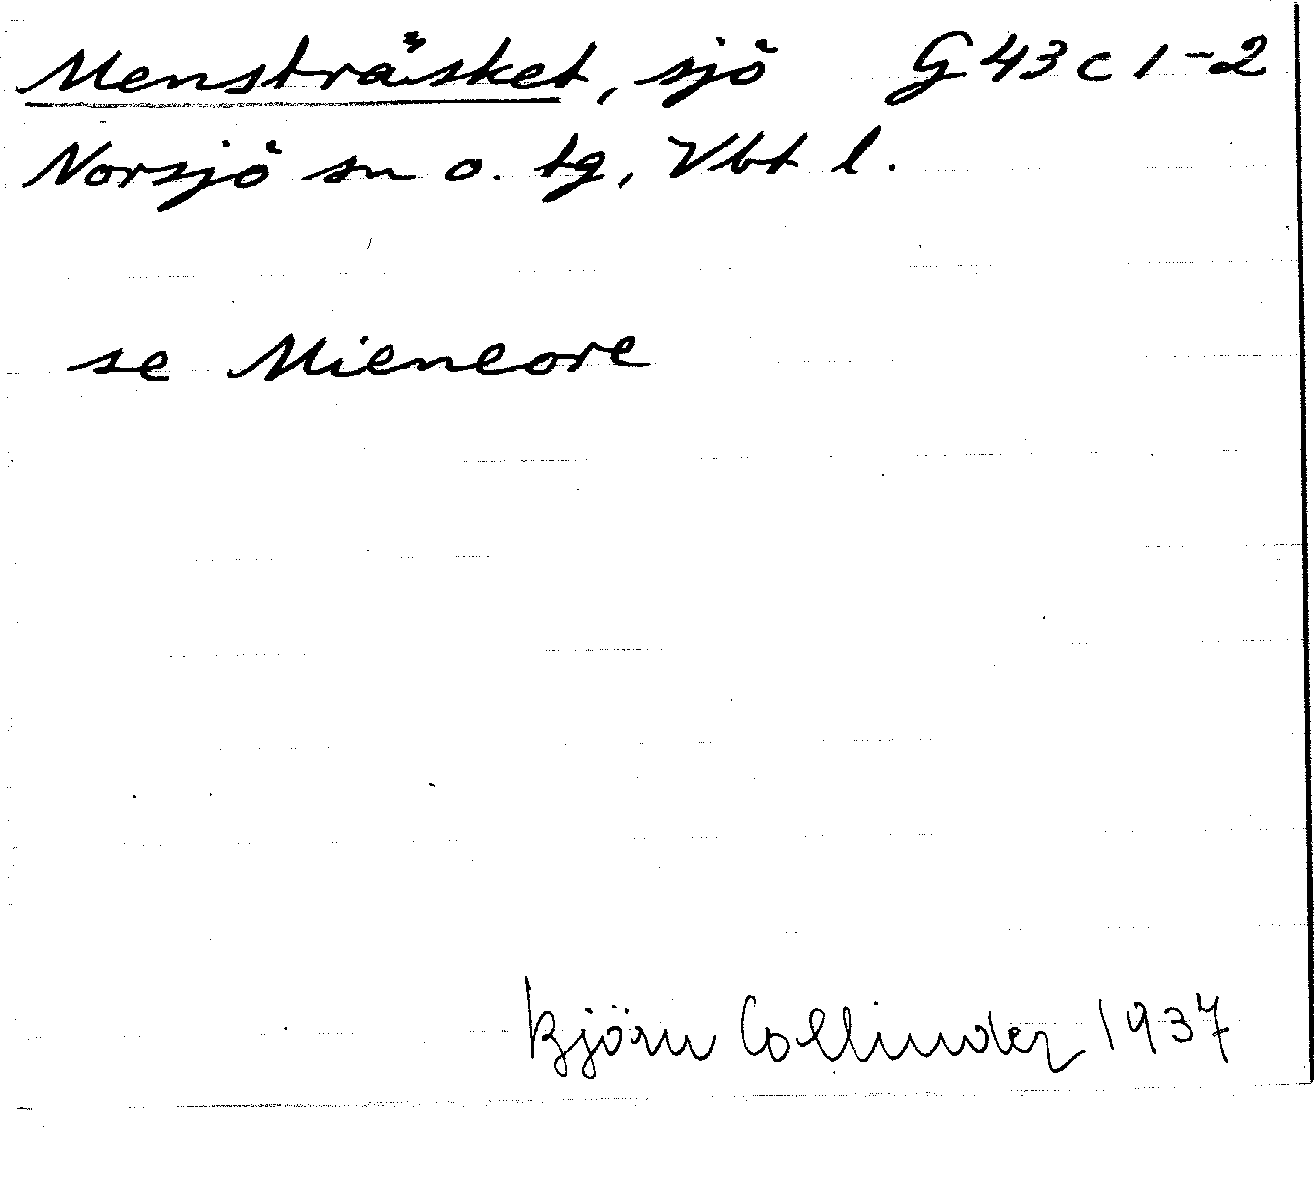 Mensträsket, sjö G 43 c 1-2
Norsjö sn o. tg, Vbt l.
se Mieneore
Björn Collinder 1937